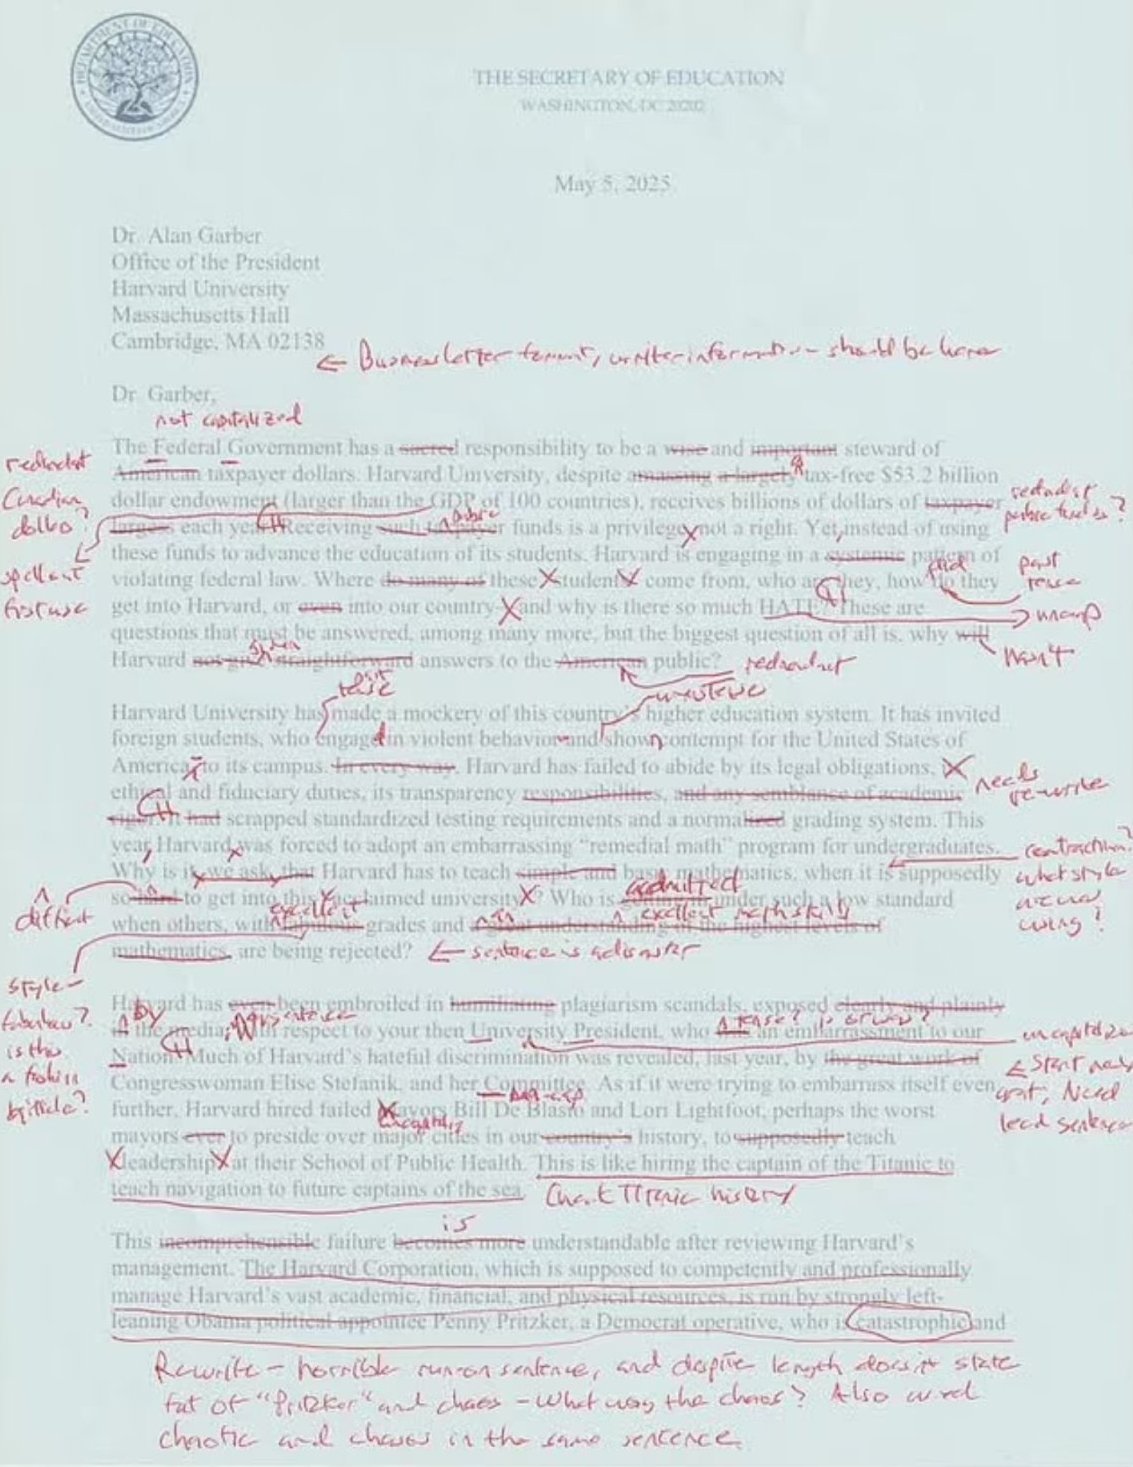 DEPARTMENT OF EDUCATION
UNITED STATES OF AMERICA
THE SECRETARY OF EDUCATION
WASHINGTON, DC 20202
May 5, 2025
Dr. Alan Garber
Office of the President
Harvard University
Massachusetts Hall
Cambridge, MA 02138
← Business letter format, writer information should be here
Dr. Garber,
not capitalized
The Federal Government has a sacred responsibility to be a wise and important steward of
redundant
American taxpayer dollars. Harvard University, despite amassing a largely tax-free $53.2 billion
Canadian
dollars?
dollar endowment (larger than the GDP of 100 countries), receives billions of dollars of taxpayer
redundant
public funds?
largess each year. Receiving such taxpayer funds is a privilege, not a right. Yet, instead of using
public
these funds to advance the education of its students, Harvard is engaging in a systemic pattern of
spell out
first use
violating federal law. Where do many of these "students" come from, who are they, how do they
did
past
tense
get into Harvard, or even into our country - and why is there so much HATE? These are
uncap
questions that must be answered, among many more, but the biggest question of all is, why will
won't
Harvard not give straightforward answers to the American public?
redundant
tense
Harvard University has made a mockery of this country's higher education system. It has invited
foreign students, who engage in violent behavior and show contempt for the United States of
America, to its campus. In every way, Harvard has failed to abide by its legal obligations, its
needs
re-write
ethical and fiduciary duties, its transparency responsibilities, and any semblance of academic
rigor. It had scrapped standardized testing requirements and a normalized grading system. This
year Harvard was forced to adopt an embarrassing "remedial math" program for undergraduates.
contraction?
what style
are we
using?
Why is it, we ask, that Harvard has to teach simple and basic mathematics, when it is supposedly
difficult
so hard to get into this "acclaimed university"? Who is getting in under such a low standard
admitted
when others, with fabulous grades and a great understanding of the highest levels of
excellent
excellent math skills
mathematics, are being rejected?
← sentence is a disaster
style-
fabulous?
is this
a fashion
article?
Harvard has even been embroiled in humiliating plagiarism scandals, exposed clearly and plainly
by
in the media, with respect to your then University President, who is an embarrassment to our
tense? Is or was?
uncapitalize
Nation. Much of Harvard's hateful discrimination was revealed, last year, by the great work of
← start new
graf, Need
lead sentence
Congresswoman Elise Stefanik, and her Committee. As if it were trying to embarrass itself even
further, Harvard hired failed Mayors Bill De Blasio and Lori Lightfoot, perhaps the worst
mayors ever to preside over major cities in our country's history, to supposedly teach
"leadership" at their School of Public Health. This is like hiring the captain of the Titanic to
teach navigation to future captains of the sea.
Check Titanic history
is
This incomprehensible failure becomes more understandable after reviewing Harvard's
management. The Harvard Corporation, which is supposed to competently and professionally
manage Harvard's vast academic, financial, and physical resources, is run by strongly left-
leaning Obama political appointee Penny Pritzker, a Democrat operative, who is catastrophic and
Rewrite - horrible run-on sentence, and despite length doesn't state
fact of "Pritzker" and chaos - What was the chaos? Also word
chaotic and chaos in the same sentence